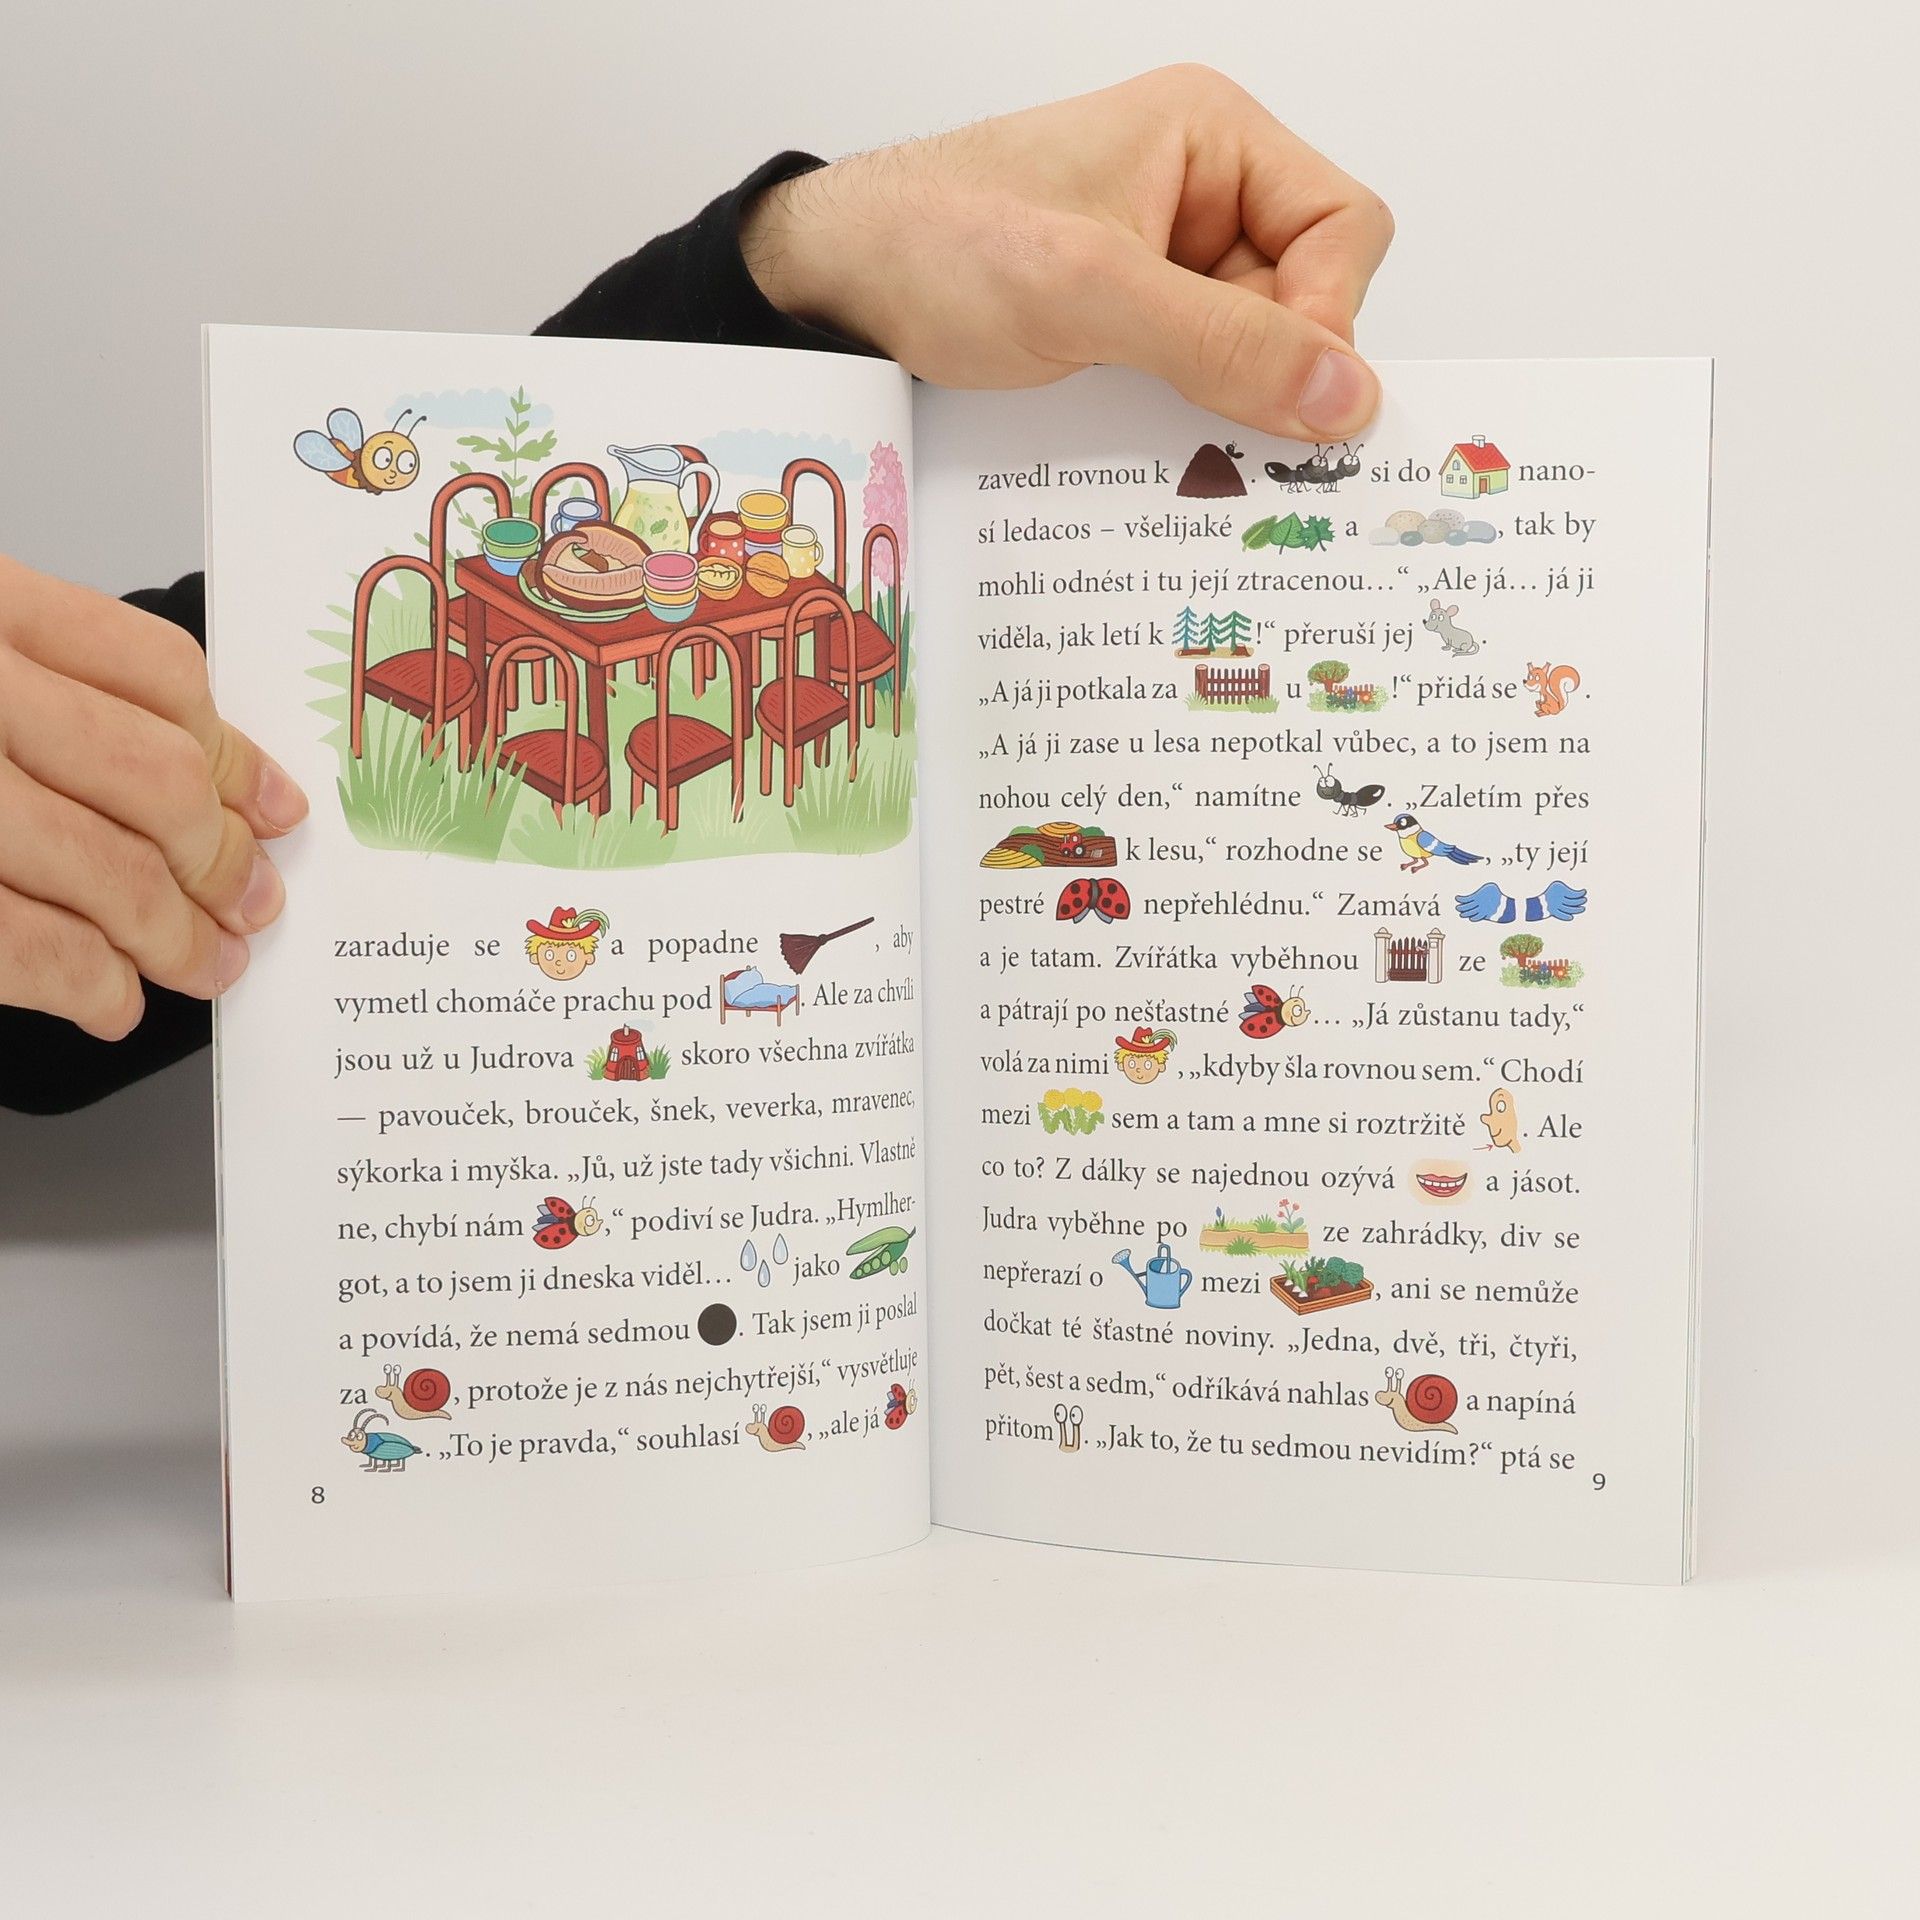 zaraduje se a popadne , aby
vymetl chomáče prachu pod . Ale za chvíli
jsou už u Judrova skoro všechna zvířátka
— pavouček, brouček, šnek, veverka, mravenec,
sýkorka i myška. „Jů, už jste tady všichni. Vlastně
ne, chybí nám ,“ podiví se Judra. „Hymlher-
got, a to jsem ji dneska viděl… jako
a povídá, že nemá sedmou . Tak jsem ji poslal
za , protože je z nás nejchytřejší,“ vysvětluje
. „To je pravda,“ souhlasí , „ale já
8
zavedl rovnou k . si do nano-
sí ledacos – všelijaké a , tak by
mohli odnést i tu její ztracenou…“ „Ale já… já ji
viděla, jak letí k !“ přeruší jej .
„A já ji potkala za u !“ přidá se .
„A já ji zase u lesa nepotkal vůbec, a to jsem na
nohou celý den,“ namítne . „Zaletím přes
k lesu,“ rozhodne se , „ty její
pestré nepřehlédnu.“ Zamává
a je tatam. Zvířátka vyběhnou ze
a pátrají po nešťastné … „Já zůstanu tady,“
volá za nimi , „kdyby šla rovnou sem.“ Chodí
mezi sem a tam a mne si roztržitě . Ale
co to? Z dálky se najednou ozývá a jásot.
Judra vyběhne po ze zahrádky, div se
nepřerazí o mezi , ani se nemůže
dočkat té šťastné noviny. „Jedna, dvě, tři, čtyři,
pět, šest a sedm,“ odříkává nahlas a napíná
přitom . „Jak to, že tu sedmou nevidím?“ ptá se
9